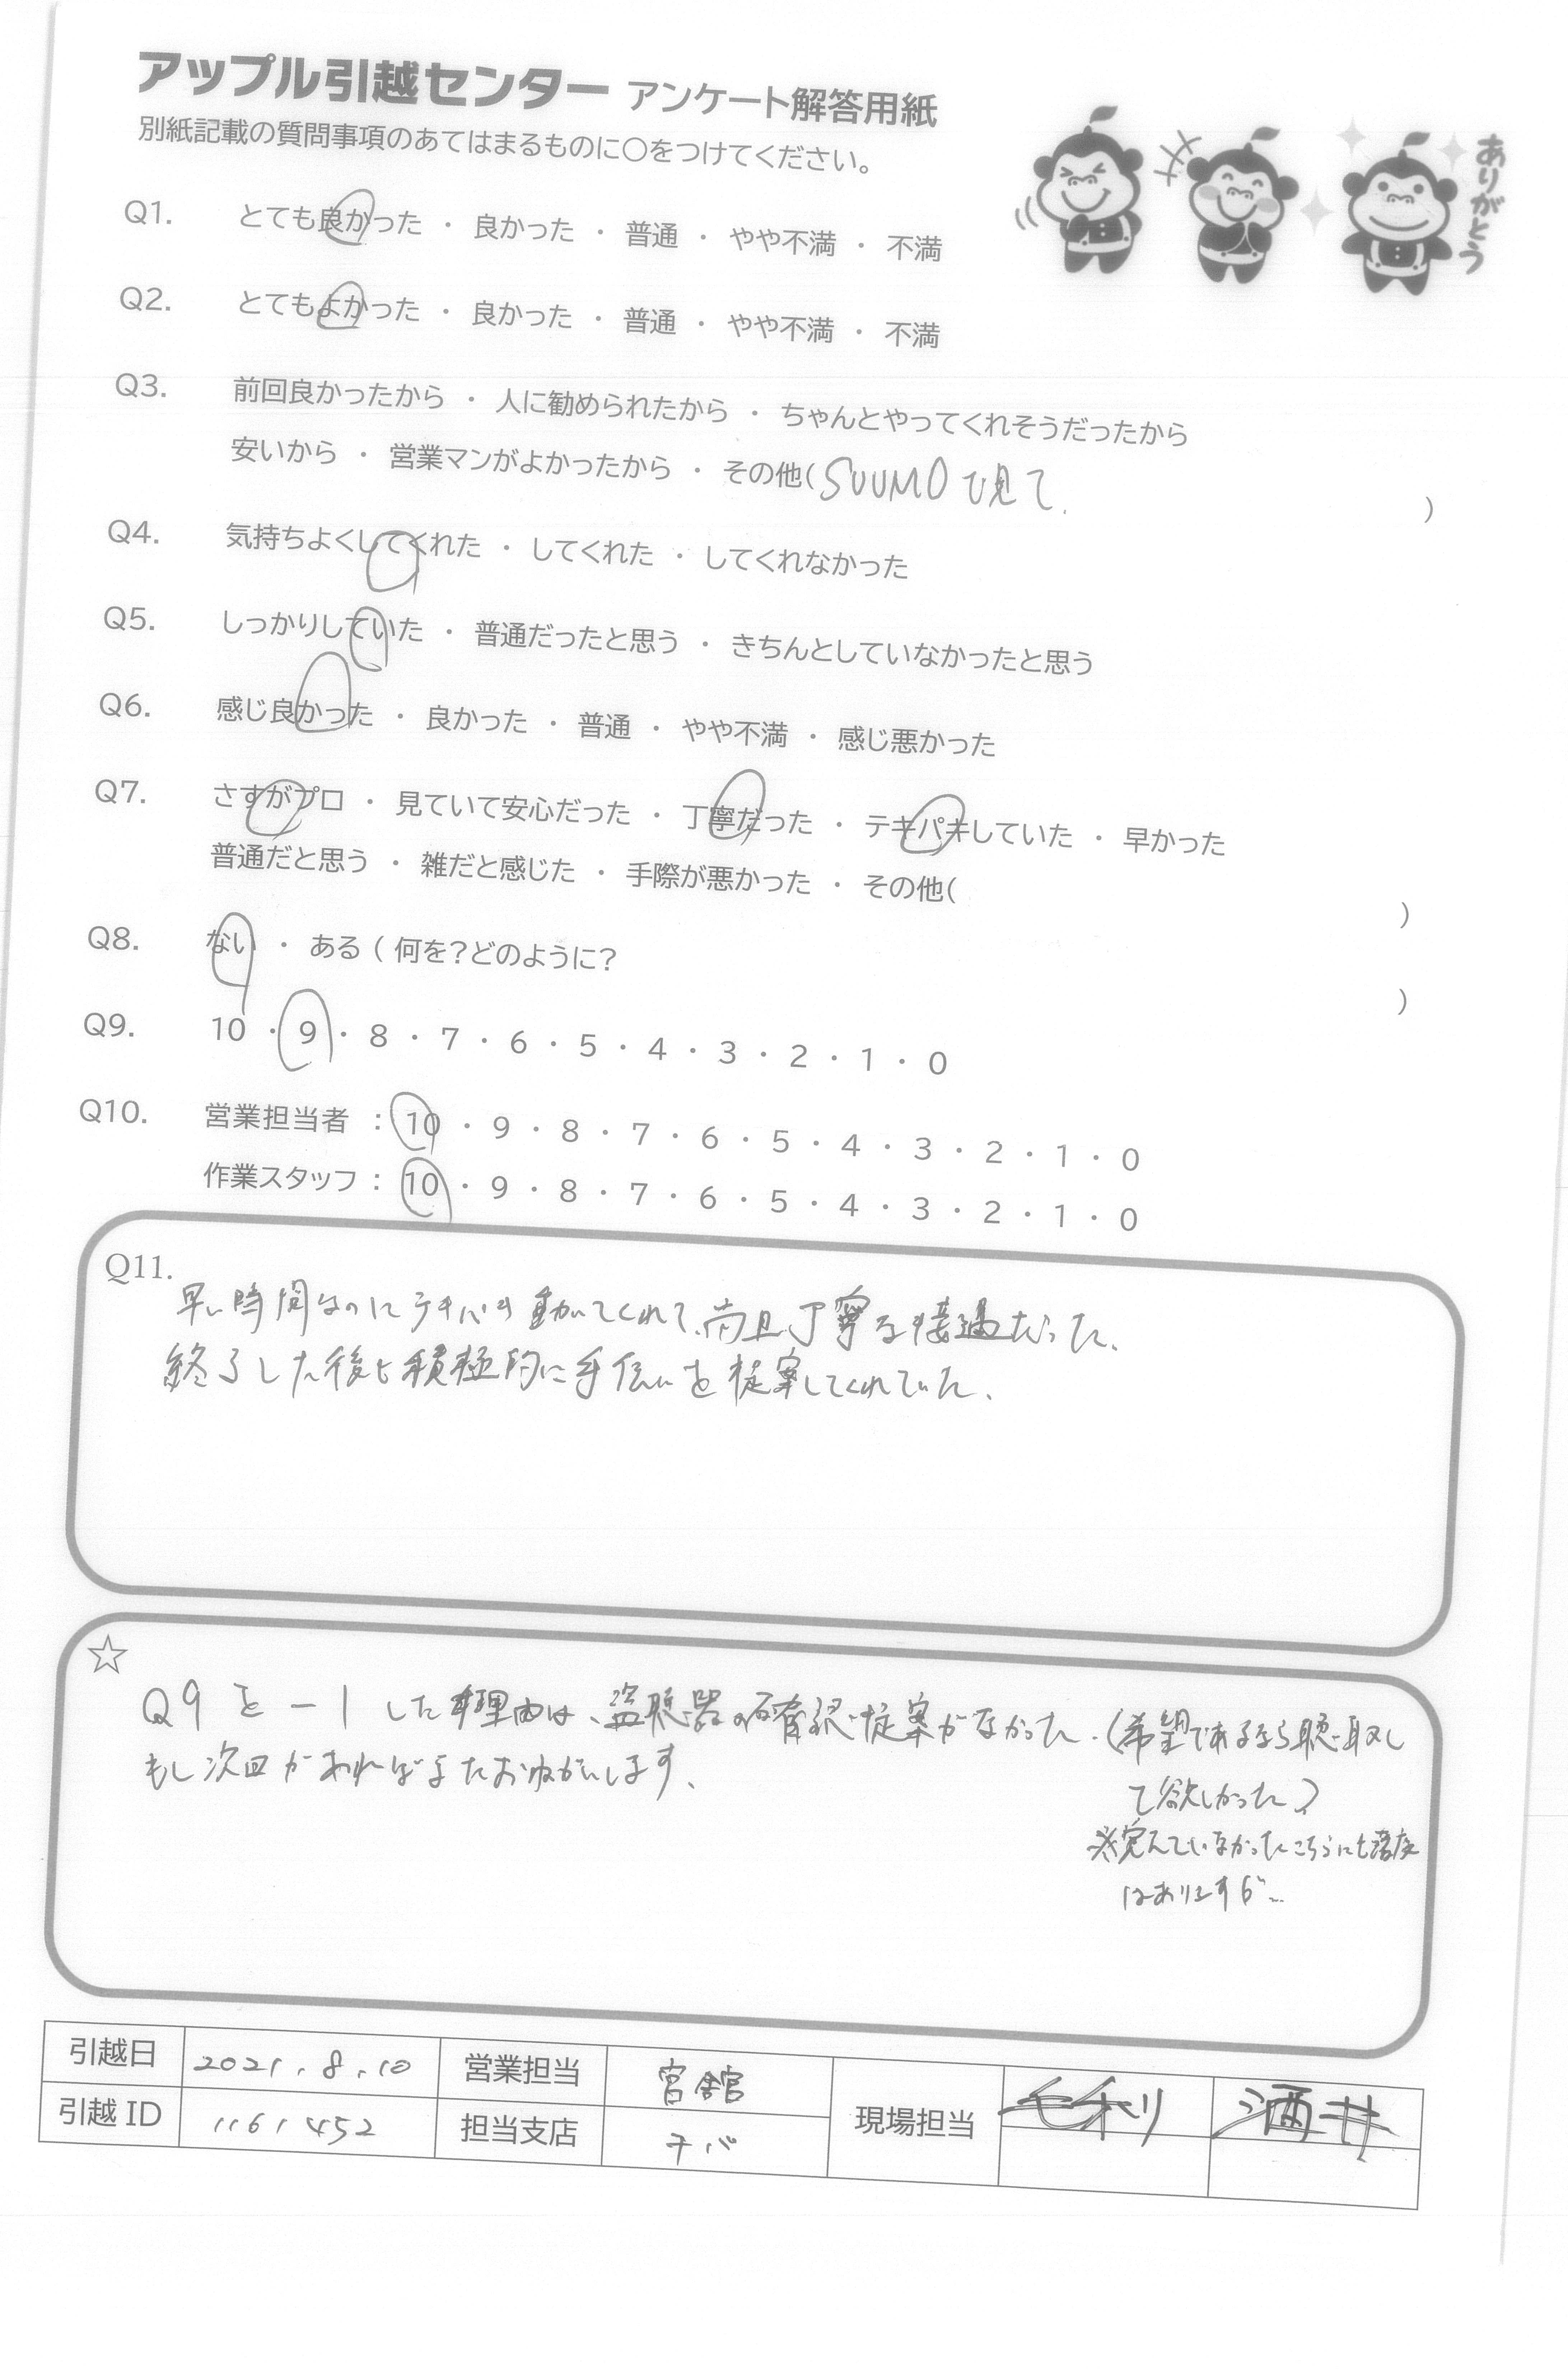 アップル引越センター アンケート解答用紙
別紙記載の質問事項のあてはまるものに○をつけてください。
ありがとう
Q1. とても良かった ・ 良かった ・ 普通 ・ やや不満 ・ 不満
Q2. とてもよかった ・ 良かった ・ 普通 ・ やや不満 ・ 不満
Q3. 前回良かったから ・ 人に勧められたから ・ ちゃんとやってくれそうだったから
安いから ・ 営業マンがよかったから ・ その他( SUUMOで見て. )
Q4. 気持ちよくしてくれた ・ してくれた ・ してくれなかった
Q5. しっかりしていた ・ 普通だったと思う ・ きちんとしていなかったと思う
Q6. 感じ良かった ・ 良かった ・ 普通 ・ やや不満 ・ 感じ悪かった
Q7. さすがプロ ・ 見ていて安心だった ・ 丁寧だった ・ テキパキしていた ・ 早かった
普通だと思う ・ 雑だと感じた ・ 手際が悪かった ・ その他( )
Q8. ない ・ ある ( 何を?どのように? )
Q9. 10 ・ 9 ・ 8 ・ 7 ・ 6 ・ 5 ・ 4 ・ 3 ・ 2 ・ 1 ・ 0
Q10. 営業担当者 : 10 ・ 9 ・ 8 ・ 7 ・ 6 ・ 5 ・ 4 ・ 3 ・ 2 ・ 1 ・ 0
作業スタッフ : 10 ・ 9 ・ 8 ・ 7 ・ 6 ・ 5 ・ 4 ・ 3 ・ 2 ・ 1 ・ 0
Q11.
早い時間なのにテキパキ動いてくれて、尚且丁寧な接遇だった。
終了した後も積極的に手伝いを提案してくれていた。
☆
Q9を－1した理由は、盗聴器の確認・提案がなかった。(希望であるなら聴取し
て欲しかった)
もし次回があればまたおねがいします。
※覚えていなかったこちらにも落度
はありますが…
引越日 2021.8.10 営業担当 宮舘 現場担当 毛利 酒井
引越 ID 1161452 担当支店 チバ